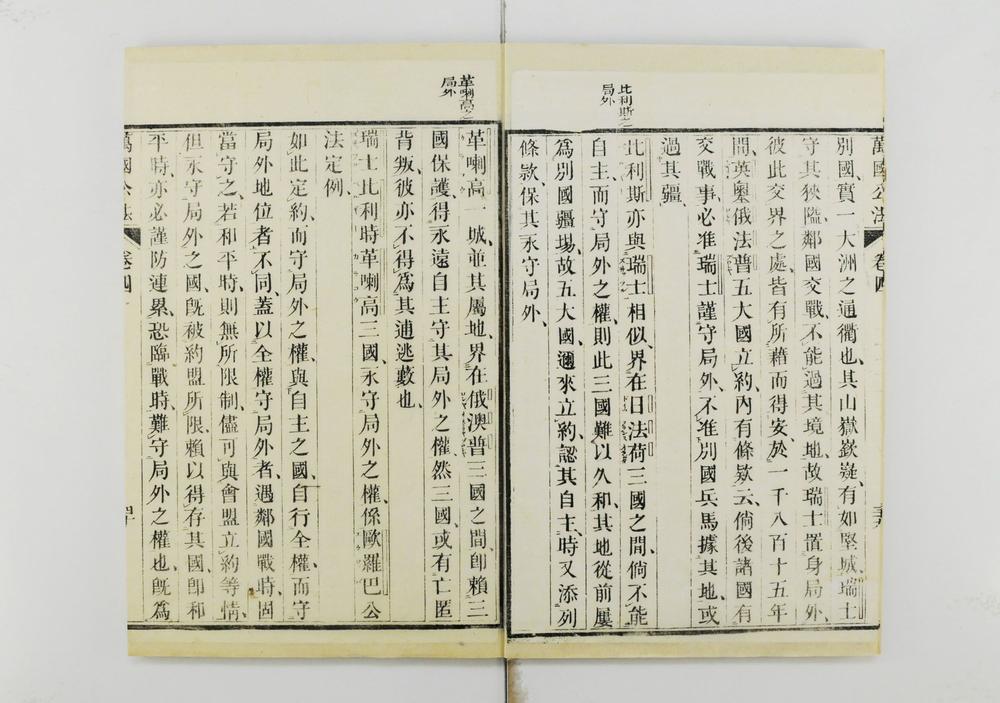 萬國公法 卷四
別國、實一大洲之通衢也、其山嶽嶔嶷、有如堅城、瑞士
守其狹隘、鄰國交戰、不能過其境地、故瑞士置身局外、
彼此交界之處、皆有所藉而得安、於一千八百十五年
間、英奧俄法普五大國立約、內有條款云、倘後諸國有
交戰事、必准瑞士謹守局外、不准別國兵馬據其地、或
過其疆、
比利斯之局外
比利斯亦與瑞士相似、界在日法荷三國之間、倘不能
自主而守局外之權、則此三國難以久和、其地從前屢
為別國疆場、故五大國邇來立約、認其自主、時又添列
條款、保其永守局外、
革喇高之局外
革喇高一城、並其屬地、界在俄澳普三國之間、即賴三
國保護、得永遠自主、守其局外之權、然三國或有亡匿
背叛、彼亦不得為其逋逃藪也、
瑞士比利時革喇高三國、永守局外之權、係歐羅巴公
法定例、
如此定約、而守局外之權、與自主之國、自行全權而守
局外地位者不同、蓋以全權守局外者、遇鄰國戰時、固
當守之、若和平時、則無所限制、儘可與會盟立約等情、
但永守局外之國、既被約盟所限、賴以得存其國、即和
平時、亦必謹防連累、恐臨戰時、難守局外之權也、既為
萬國公法 卷四